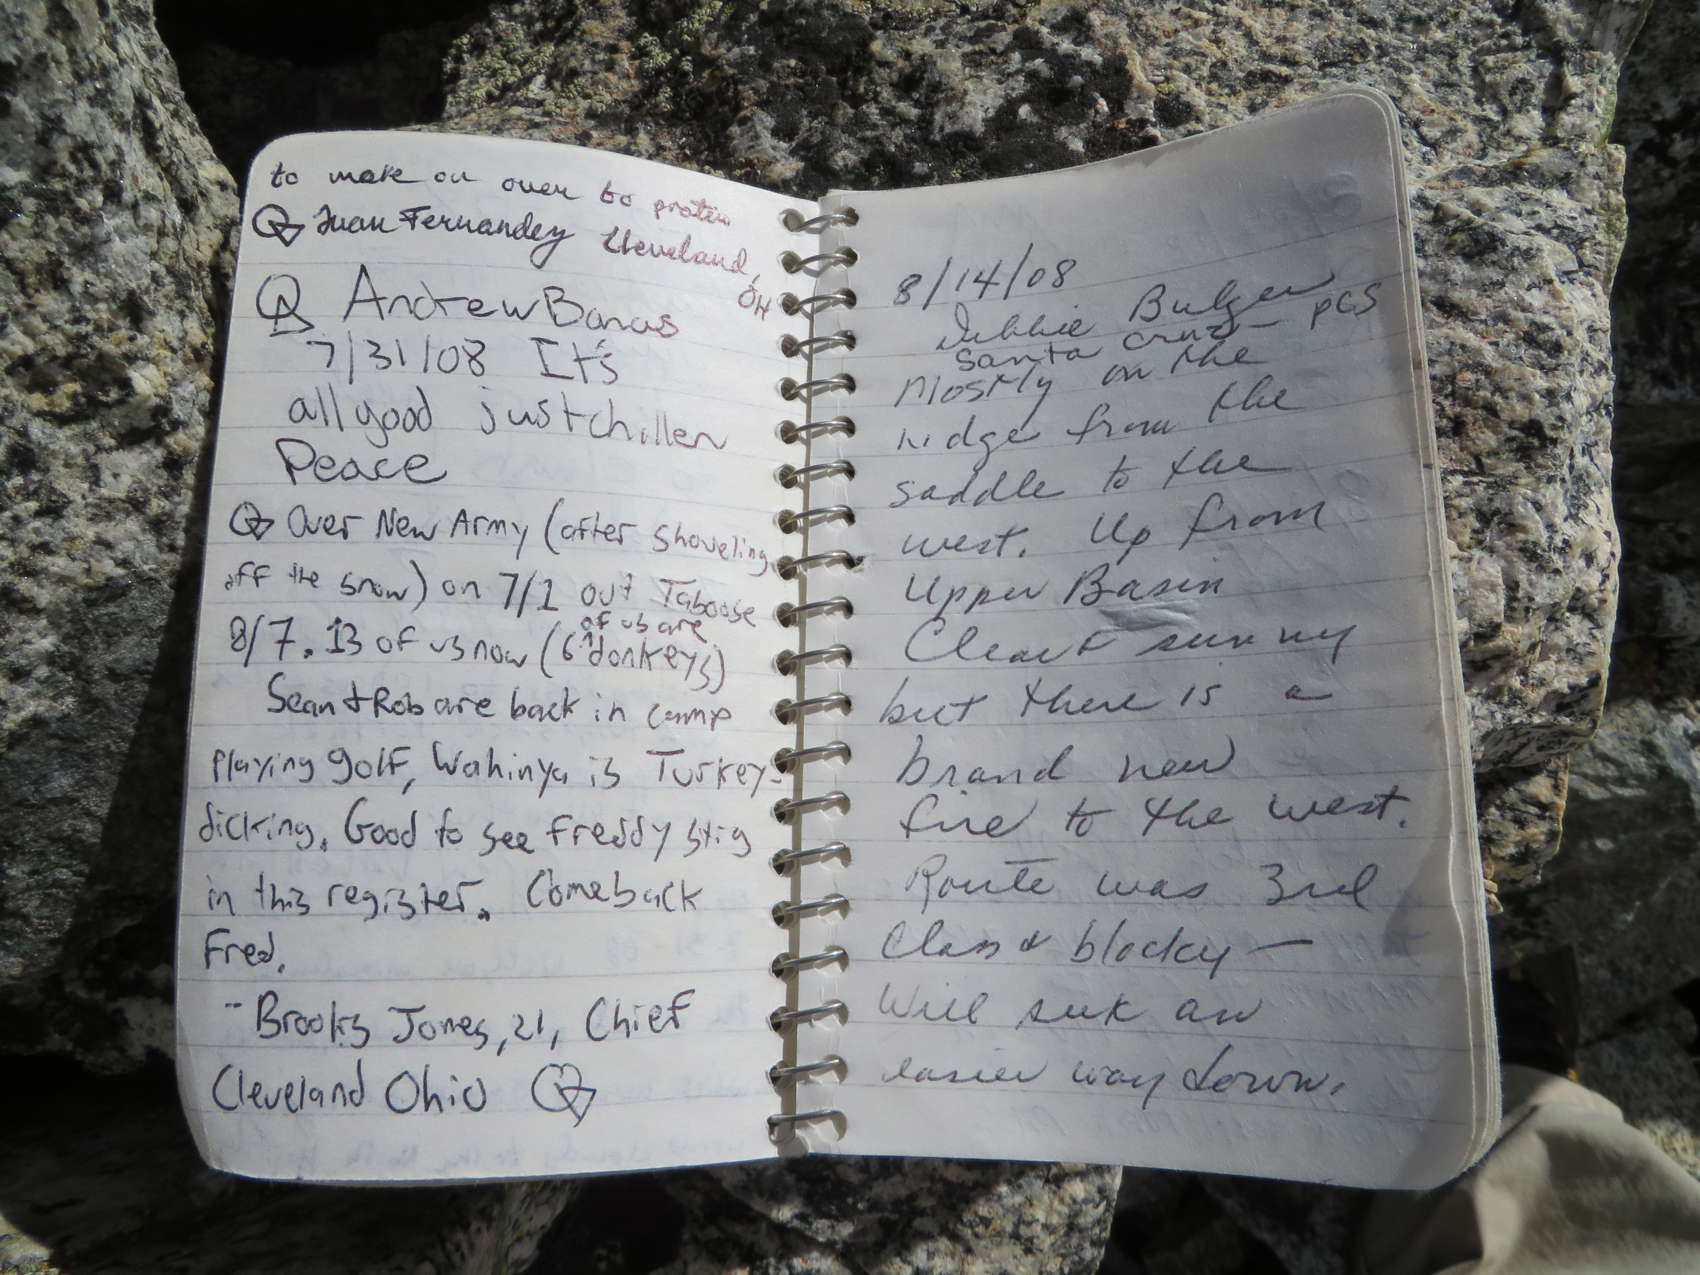 to make on over to protein
Juan Fernandez Cleveland,
OH
Andrew Banas
7/31/08 It's
all good just chillen
Peace
Over New Army (after shoveling
off the snow) on 7/1 out Taboose
8/7. 13 of us now (6 of us are donkeys)
Sean & Rob are back in camp
playing golf, Wahinya is Turkey
dicking. Good to see Freddy stig
in this register. Comeback
Fred.
- Brooks Jones, 21, Chief
Cleveland Ohio
8/14/08
Debbie Bulger
Santa Cruz - PCS
Mostly on the
ridge from the
saddle to the
west. Up from
Upper Basin
Clear & sunny
but there is a
brand new
fire to the west.
Route was 3rd
Class & blocky -
Will seek an
easier way down.